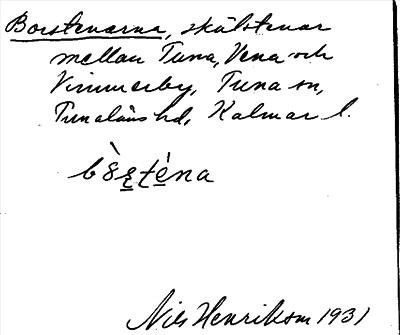 Borstenarna, skälstenar
mellan Tuna, Vena och
Vimmerby, Tuna sn,
Tunaläns hd, Kalmar l.
Nils Henrikson 1931